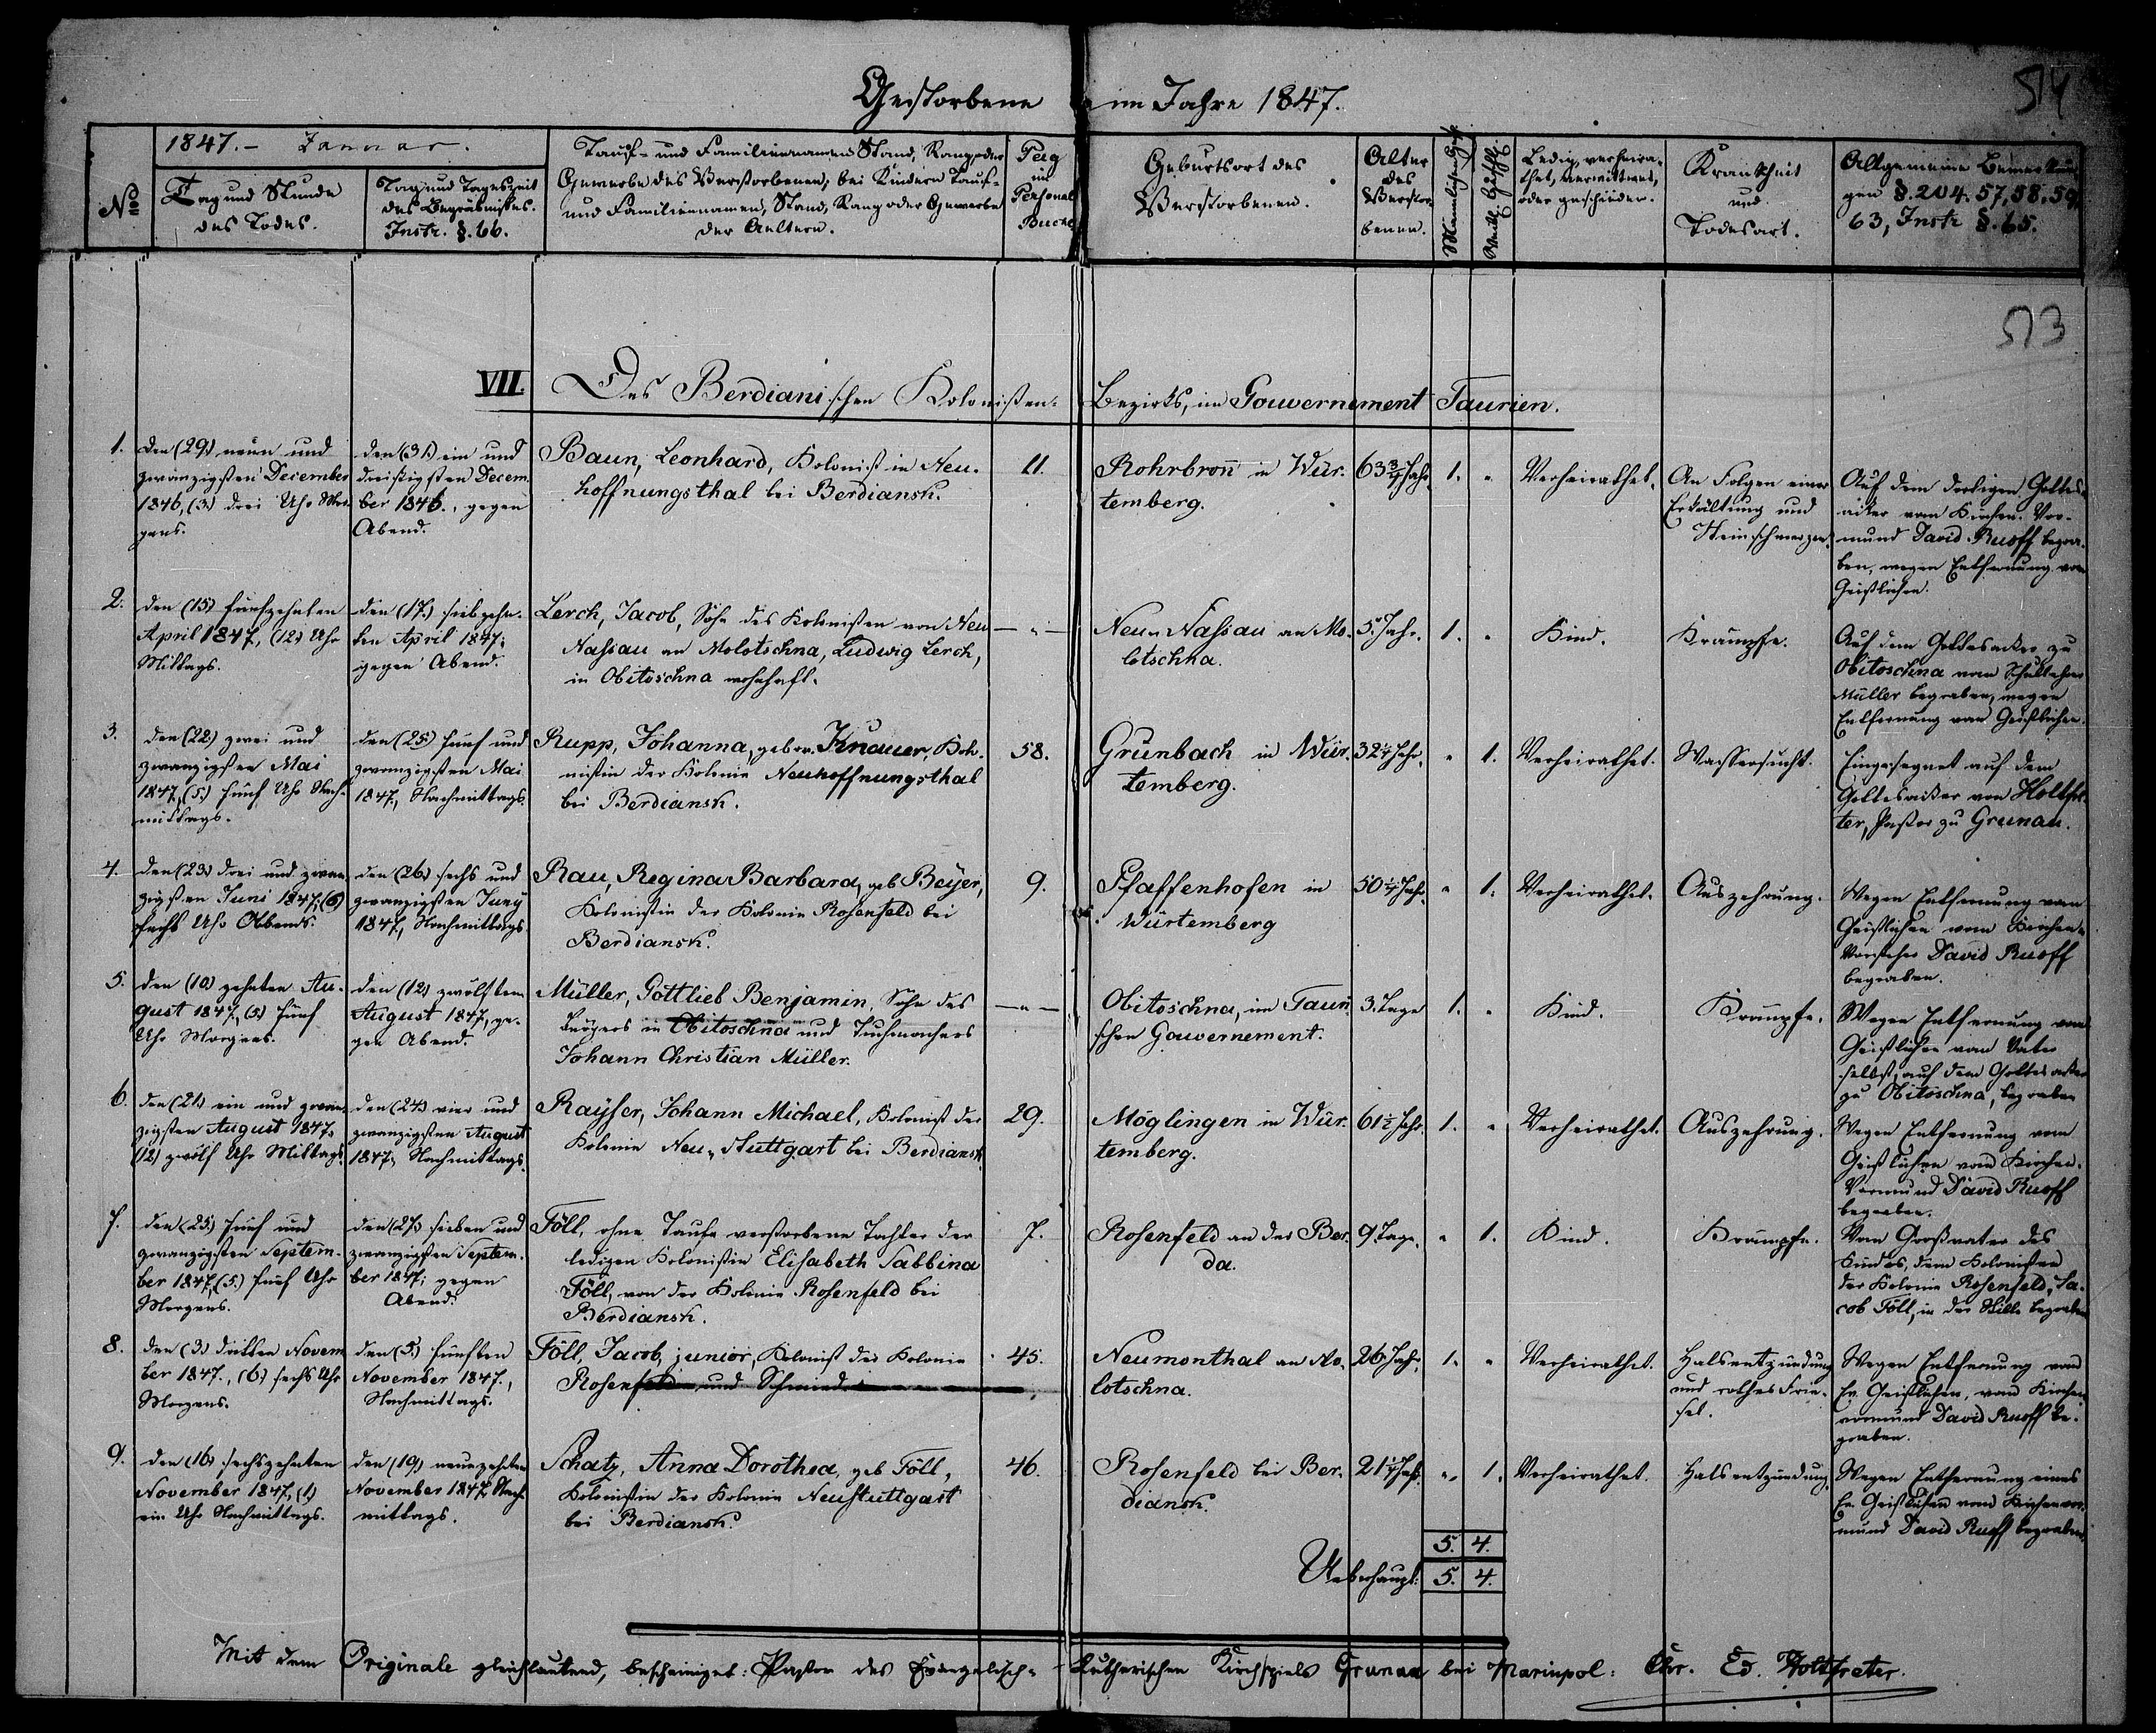 Gestorbene im Jahre 1847.
514
No
1847. - Januar.
Tag und Stunde
des Todes.
Tag und Tageszeit
des Begräbnisses.
Instr. §. 66.
Tauf- und Familiennamen Stand, Rang oder
Gewerbe des Verstorbenen, bei Kindern Tauf-
und Familiennamen, Stand, Rang oder Gewerbe
der Aeltern.
Pag
im
Personal
Buche
Geburtsort des
Verstorbenen.
Alter
des
Verstor-
benen.
Männlichen
Weibl. Geschl.
Ledig, verheira-
thet, verwittwet,
oder geschieden.
Krankheit
und
Todesart.
Allgemeine Bemerkun-
gen §. 204. 57, 58, 59,
63, Instr §. 65.
513
VII. Des Berdianischen Kolonisten- Bezirks, im Gouvernement Taurien.
1.
den (29.) neun und
zwanzigsten December
1846, (3.) drei Uhr Mor-
gens.
den (31.) ein und
dreißigsten Decem-
ber 1846., gegen
Abend.
Baun, Leonhard, Kolonist in Neu-
hoffnungsthal bei Berdiansk.
11.
Rohrbron̄ in Wür-
temberg.
63¾ Jahr.
1. "
Verheirathet.
An Folgen einer
Erkältung und
Steinschmerzen.
Auf dem dortigen Gottes-
acker vom Kirchen-Vor-
mund David Ruoff begra-
ben, wegen Entfernung vom
Geistlichen.
2.
den (15.) fünfzehnten
April 1847, (12.) Uhr
Mittags.
den (17.) siebzehn-
ten April 1847,
gegen Abend.
Lerch, Jacob, Sohn des Kolonisten von Neu
Nassau an Molotschna, Ludwig Lerch,
in Obitoschna wohnhaft.
— " —
Neu-Nassau an Mo-
lotschna.
5. Jahr.
1. "
Kind.
Krämpfe.
Auf dem Gottesacker zu
Obitoschna vom Schullehrer
Müller begraben, wegen
Entfernung vom Geistlichen.
3.
den (22.) zwei und
zwanzigsten Mai
1847, (5.) fünf Uhr Nach-
mittags.
den (25.) fünf und
zwanzigsten Mai
1847, Nachmittags.
Rupp, Johanna, gebor. Knauer, Kolo-
nistin der Kolonie Neuhoffnungsthal
bei Berdiansk.
58.
Grunbach in Wür-
temberg.
32¼ Jahr.
" 1.
Verheirathet.
Wassersucht.
Eingesegnet auf dem
Gottesacker von Holtfre-
ter, Pastor zu Grunau.
4.
den (23.) drei und zwan-
zigsten Juni 1847, (6.)
sechs Uhr Abends.
den (26.) sechs und
zwanzigsten Juny
1847, Nachmittags
Rau, Regina Barbara, geb Beyer,
Kolonistin der Kolonie Rosenfeld bei
Berdiansk.
9.
Pfaffenhofen in
Würtemberg
50¼ Jahr.
" 1.
Verheirathet.
Auszehrung.
Wegen Entfernung vom
Geistlichen vom Kirchen-
Vorsteher David Ruoff
begraben.
5.
den (10) zehnten Au-
gust 1847, (5.) fünf
Uhr Morgens.
den (12.) zwölften
August 1847, ge-
gen Abend.
Müller, Gottlieb Benjamin, Sohn des
Bürgers in Obitoschna und Tuchmachers
Johann Christian Müller.
— " —
Obitoschna, im Tauri-
schen Gouvernement.
3. Tage
1. "
Kind.
Krämpfe.
Wegen Entfernung vom
Geistlichen vom Vater
selbst, auf dem Gottesacker
zu Obitoschna, begraben
6.
den (21.) ein und zwan-
zigsten August 1847,
(12.) zwölf Uhr Mittags.
den (24.) vier und
zwanzigsten August
1847, Nachmittags.
Rayser, Johann Michael, Kolonist der
Kolonie Neu-Stuttgart bei Berdiansk.
29.
Möglingen in Wür-
temberg.
61½ Jahr.
1. "
Verheirathet.
Auszehrung.
Wegen Entfernung vom
Geistlichen vom Kirchen-
Vormund David Ruoff
begraben.
7.
den (25.) fünf und
zwanzigsten Septem-
ber 1847, (5.) fünf Uhr
Morgens.
den (27.) sieben und
zwanzigsten Septem-
ber 1847, gegen
Abend.
Föll, ohne Taufe verstorbene Tochter der
ledigen Kolonistin Elisabeth Sabbina
Föll, von der Kolonie Rosenfeld bei
Berdiansk.
7.
Rosenfeld an der Ber-
da.
9. Tage.
" 1.
Kind.
Krämpfe.
Vom Großvater des
Kindes, dem Kolonisten
der Kolonie Rosenfeld, Ja-
cob Föll, in der Stille begraben
8.
den (3.) dritten Novem-
ber 1847., (6.) sechs Uhr
Morgens.
den (5.) fünften
November 1847.,
Nachmittags.
Föll, Jacob, junior, Kolonist der Kolonie
Rosenfeld und Schmied.
45.
Neumonthal an Mo-
lotschna.
26. Jahr.
1. "
Verheirathet.
Halsentzündung
und rothes Frie-
sel.
Wegen Entfernung vom
Ev. Geistlichen, vom Kirchen-
vormund David Ruoff be-
graben.
9.
den (16.) sechszehnten
November 1847, (1.)
ein Uhr Nachmittags.
den (19.) neunzehnten
November 1847, Nach-
mittags.
Schatz, Anna Dorothea, geb Föll,
Kolonistin der Kolonie Neustuttgart
bei Berdiansk.
46.
Rosenfeld bei Ber-
diansk.
21¼ Jahr.
" 1.
Verheirathet.
Halsentzündung.
Wegen Entfernung eines
Ev. Geistlichen vom Kirchenvor-
mund David Ruoff begraben.
5. 4.
Ueberhaupt: 5. 4.
Mit dem Originale gleichlautend, bescheiniget: Pastor des Evangelisch- Lutherischen Kirchspiels Grunau bei Mariupol: Chr. Ed. Holtfreter.